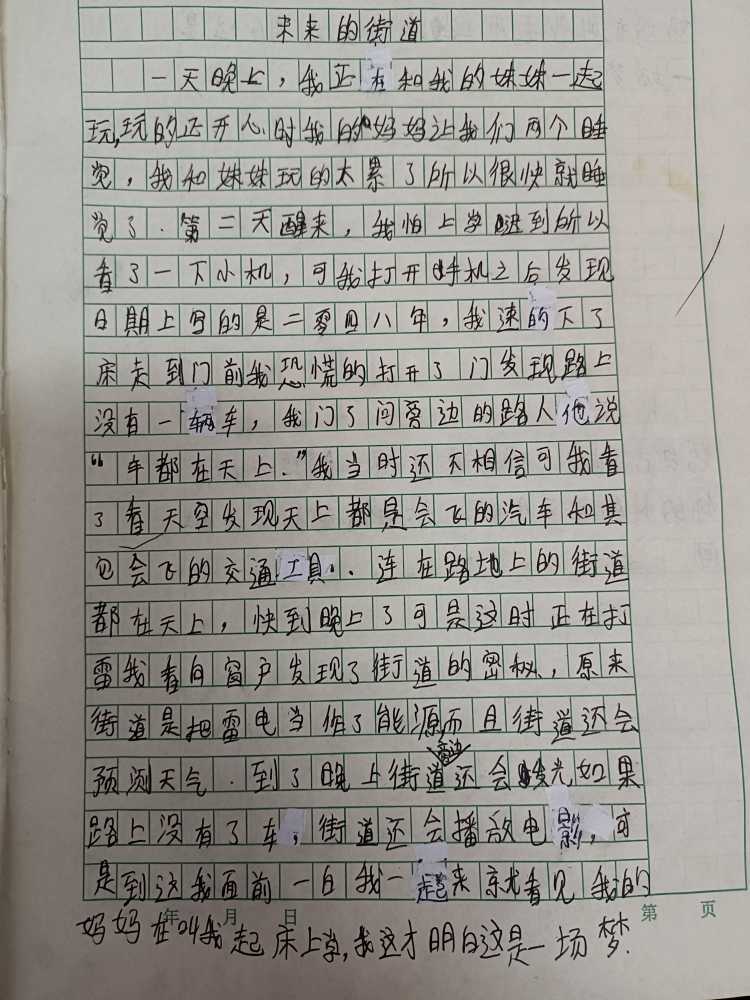 未来的街道
一天晚上，我正在和我的妹妹一起
玩,玩的正开心时我的妈妈让我们两个睡
觉，我和妹妹玩的太累了所以很快就睡
觉了．第二天醒来，我怕上学迟到所以
看了一下小机，可我打开手机之后发现
日期上写的是二零四八年，我速的下了
床走到门前我恐慌的打开了门发现路上
没有一辆车，我门了问旁边的路人他说
“车都在天上．”我当时还不相信可我看
了看天空发现天上都是会飞的汽车和其
它会飞的交通工具．连在路地上的街道
都在天上，快到晚上了可是这时正在打
雷我看向窗户发现了街道的密秘，原来
街道是把雷电当作了能源而且街道还会
预测天气．到了晚上街道旁边还会发光如果
路上没有了车，街道还会播放电影，可
是到这我面前一白我一起来就看见我的
年 月 日
第 页
妈妈在叫我起床上学,我这才明白这是一场梦.